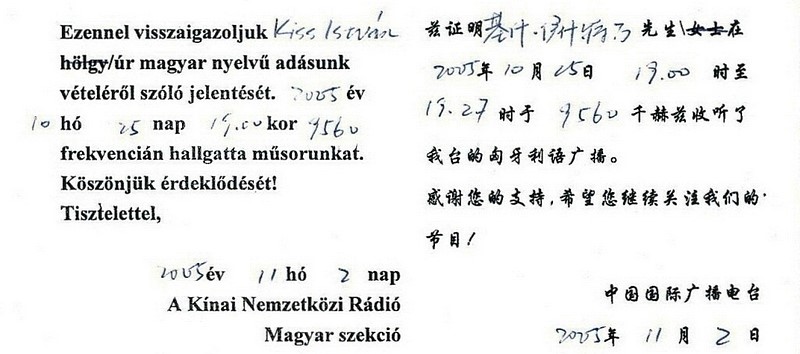 Ezennel visszaigazoljuk Kiss István
hölgy/úr magyar nyelvű adásunk
vételéről szóló jelentését. 2005 év
10 hó 25 nap 19.00 kor 9560
frekvencián hallgatta műsorunkat.
Köszönjük érdeklődését!
Tisztelettel,
2005 év 11 hó 2 nap
A Kínai Nemzetközi Rádió
Magyar szekció
兹证明基什·伊什 先生\女士在
2005年 10月 25日 19.00 时至
19.27 时于 9560 千赫兹收听了
我台的匈牙利语广播。
感谢您的支持,希望您继续关注我们的
节目!
中国国际广播电台
2005年 11月 2日